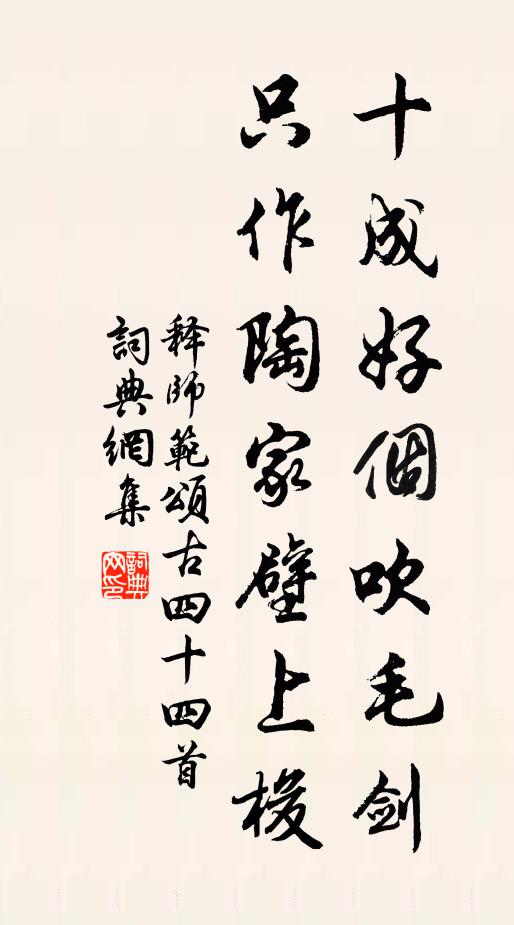 十成好個吹毛剑
只作陶家壁上梭
释師範頌古四十四首
詞典網集
詞典網印